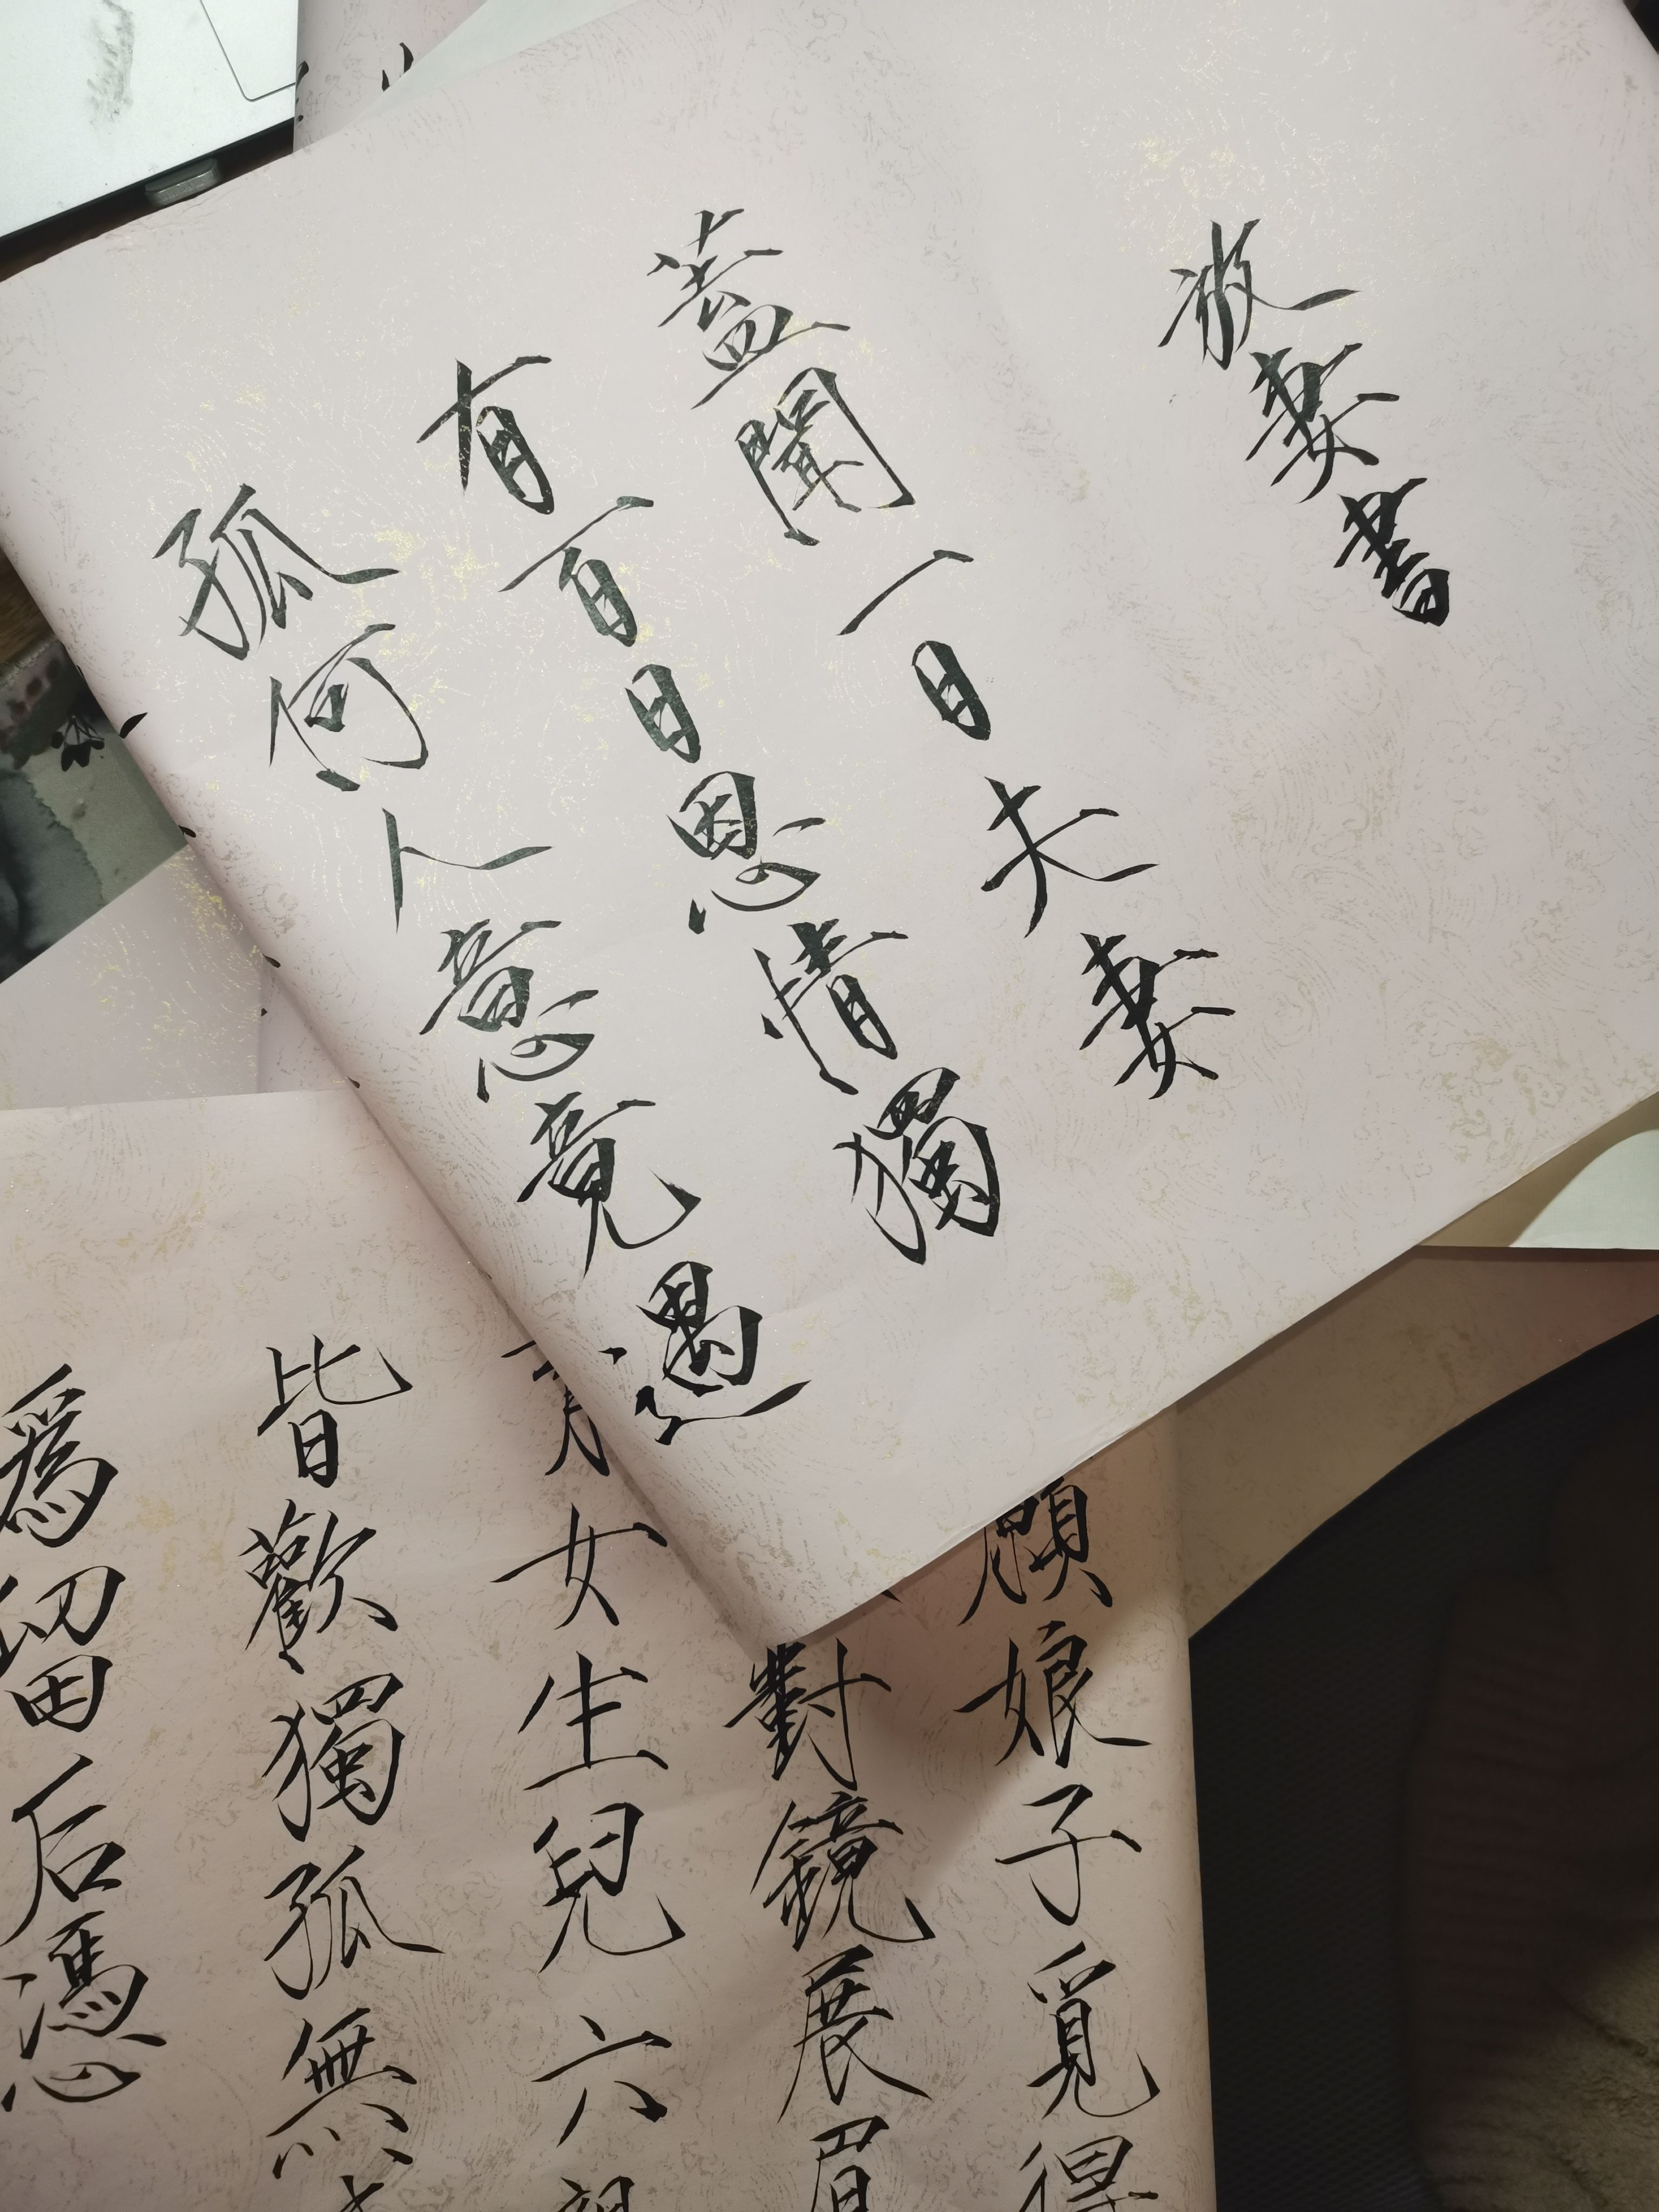 放妻書
蓋聞一日夫妻
有百日恩情獨
孤何人意竟遇
願娘子覓得
對鏡展眉
女生兒六
皆歡獨孤無
爲留后憑